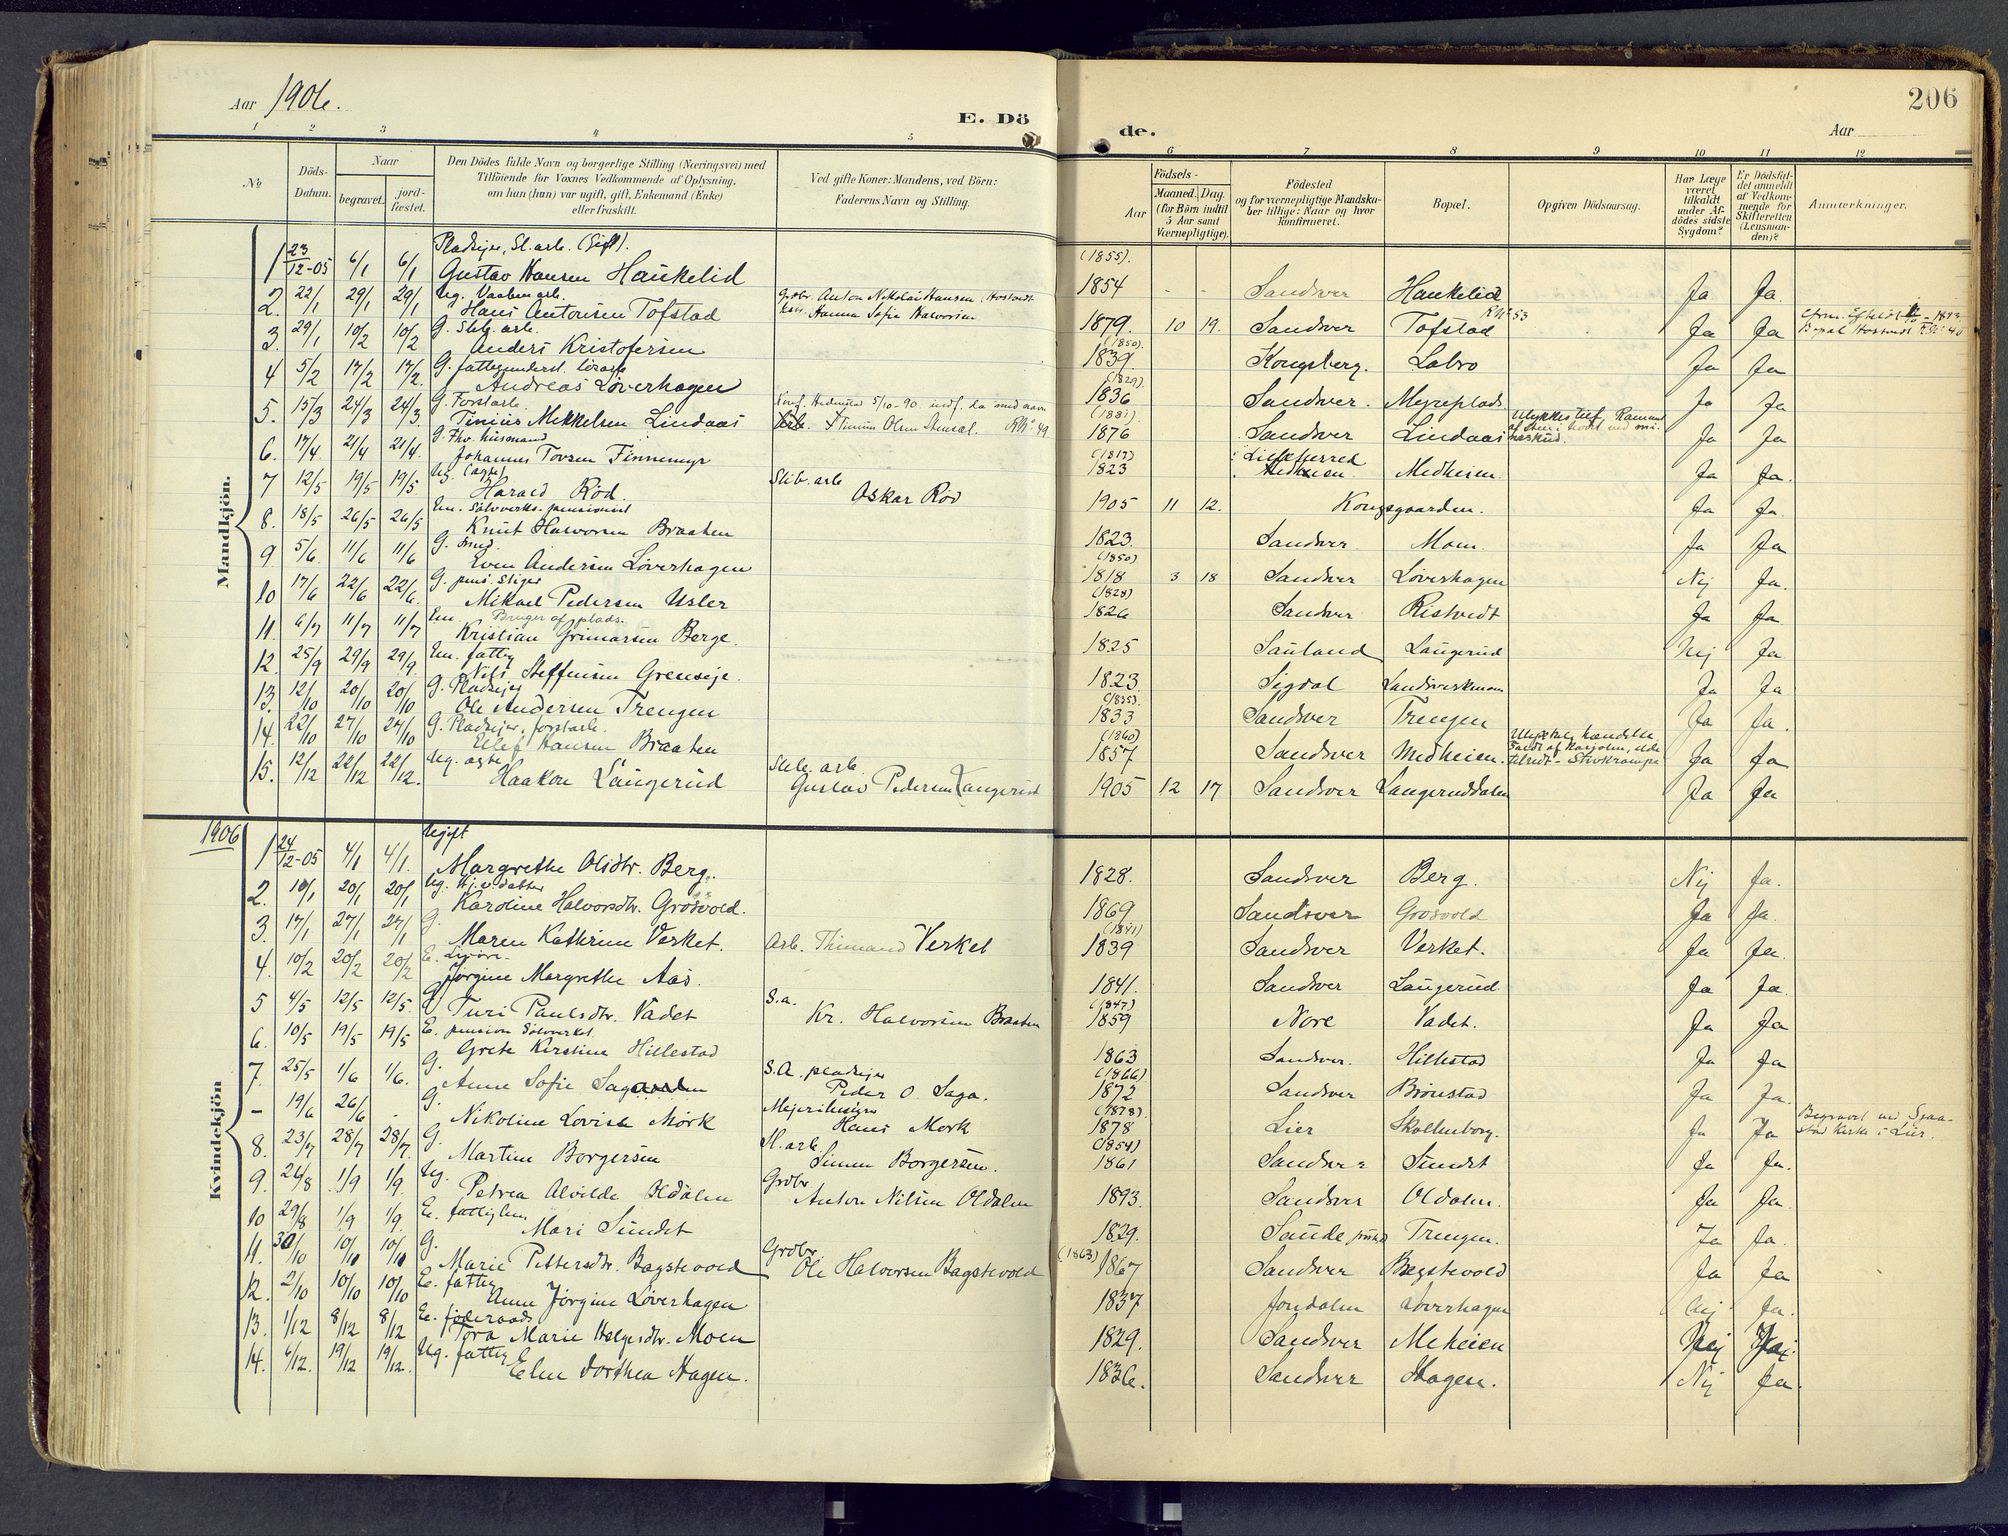 Aar 1906.
206
E. Döde.
Aar
1 2 3 4 5 6 7 8 9 10 11 12
No
Döds-Datum.
Naar
begravet.
jordfæstet.
Den Dödes fulde Navn og borgerlige Stilling (Næringsvei) med
Tilföiende for Voxnes Vedkommende af Oplysning,
om han (hun) var ugift, gift, Enkemand (Enke)
eller fraskilt.
Ved gifte Koner: Mandens, ved Börn:
Faderens Navn og Stilling.
Födsels-
Aar
Maaned. Dag.
(for Börn indtil
5 Aar samt
Værnepligtige).
Födested
og for værnepligtige Mandskaber tillige: Naar og hvor
konfirmeret.
Bopæl.
Opgiven Dödsaarsag.
Har Læge
været
tilkaldt
under Afdödes sidste
Sygdom?
Er Dödsfaldet anmeldt
af Vedkommende for
Skifteretten
(Lensmanden)?
Anmærkninger.
Mandkjön.
Pladsejer, St. arb. (Gift). (1855).
1 23/12-05 6/1 6/1 Gustav Hansen Haukelid 1854 - - Sandsver Haukelid Ja Ja
Ug. Vaabenarb. Grdbr. Anton Nikolai Hansen
2. 22/1 29/1 29/1 Hans Antonsen Tofstad Hanna Sofie Halvorsen 1879. 10 19. Sandsver Tofstad Ja Ja
G. Stb. arb. (1850).
3. 29/1 10/2 10/2 Anders Kristofersen 1839. Kongsberg. Labro Ja Ja
G. fattigunderst. (1829).
4 5/2 17/2 17/2. Andreas Löverhagen 1836 Sandsver. Myreplads Ja Ja
G. Forstarb. 5/10-90 (1881)
5. 15/3 24/3 24/3. Tinius Mikkelsen Lindaas Tinius Olsen 1876 Sandsver Lindaas Ja Ja
G. Fhv. husmand (1817)
6. 17/4 21/4 21/4. Johannes Tovsen Finnemyr 1823 Lilleherred Medheien. Ja Ja.
Ug. (ægte) Stb. arb
7 12/5 19/5 19/5 Harald Röd. Oskar Röd 1905 11 12. Kongsgaarden. Ja Ja.
Em. Sölvverks-pensionist
8. 18/5 26/5 26/5 Knut Halvorsen Braaten 1823. Sandsver Moen. Ja Ja
G. Smed. (1850)
9 5/6. 11/6 11/6 Even Andersen Löverhagen 1818 3 18 Sandsver Löverhagen Nej Ja.
G. pens. Stiger (1828)
10 17/6 22/6 22/6. Mikael Pedersen Usler 1826 Sandsver Ristvedt Ja Ja
Em. Bruger af plads.
11. 6/7 11/7 11/7 Kristian Gunnarsen Berge. 1825 Sauland Laugerud Nej Ja
Em. fattig
12. 25/9 29/9 29/9. Nils Steffensen Grenseje. 1823 Sigdal Landsverkmoen Ja Ja
G. Pladsejer (1835).
13. 12/10 20/10 20/10 Ole Andersen Trengen 1833 Sandsver Trengen Ja Ja.
G. Pladsejer, forstarb. (1860)
14. 22/10 27/10 27/10 Ellef Hansen Braaten 1857 Sandsver Medheien. Ja Ja
Ug. ægte Stb. arb.
15. 12/12 22/12 22/12. Haakon Laugerud Gustav Pedersen Laugerud 1905 12 17 Sandsver Laugeruddalen Ja Ja
1906
Kvindekjön
Ugift
1 24/12-05 4/1 4/1. Margrethe Olsdtr. Berg. 1828. Sandsver Berg. Nej Ja.
2. 10/1 20/1 20/1 Karoline Halvorsdtr. Grosvold. 1869 Sandsver Grosvold Ja Ja.
G. (1841)
3. 17/1 27/1 27/1 Maren Kathrine Verket. Arb. Thimand Verket 1839 Sandsver Verket. Ja Ja.
4. 10/2 20/2 20/2 Jörgine Margrethe Aas. 1841. Sandsver Laugerud Ja Ja.
G. S.a. (1847)
5 4/5 12/5 12/5. Turi Paulsdtr. Vadet Kr. Halvorsen Braaten 1859 Nore Vadet. Ja Ja
E. pension Sölvverket.
6. 10/5 19/5 19/5 Grete Kirstine Hillestad 1863 Sandsver. Hillestad Ja Ja
G. S.A. pladsejer (1866)
7. 25/5 1/6 1/6. Anne Sofie Sagaarden Peder O Saga. 1872 Sandsver Brönstad Ja Ja.
G. Mejeribestyrer (1878).
- 19/6 26/6 - Nikoline Lovise Mörk Hans Mörk 1878 Lier Skollenborg. Ja Ja Begravet ved Sjaastad Kirke i Lier.
G. St. arb. (1854)
8. 23/7 28/7 28/7. Martine Borgersen Simen Borgersen. 1861 Sandsver Sundet Ja Ja.
Ug. Grdbr.
9. 26/8 1/9 1/9. Petrea Alvilde Oldalen Anton Nilsen Oldalen 1893. Sandsver Oldalen. Ja Ja.
E. fattiglem
10 29/8 1/9 1/9. Mari Sundet 1829. Saude Trengen. Ja Ja.
G. Grdbr. (1863)
11. 30/10 10/10 10/10 Marie Pettersdtr. Bagstevold Ole Halvorsen Bagstevold 1867 Sandsver Bagstevold Ja Ja
E. fattig
12. 2/10 10/10 10/10 Anne Jörgine Löverhagen 1837 Jondalen Löverhagen Nej Ja.
E. föderaads
13. 1/12 8/12 8/12 Tora Marie Helgesdtr. Moen 1829. Sandsver Meheien Nej Ja.
Ug. fattig
14. 6/12. 19/12 19/12. Elen Dorthea Hagen. 1836. Sandsver Hagen. Nej Ja.